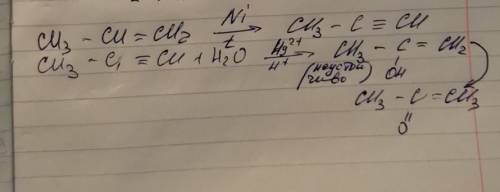 CH₃ – CH = CH₂ Ni t → CH₃ – C ≡ CH
CH₃ – C ≡ CH + H₂O Hg²⁺ H⁺ → CH₃ – C = CH₂
(неустойчиво) OH
CH₃ – C = CH₃
O